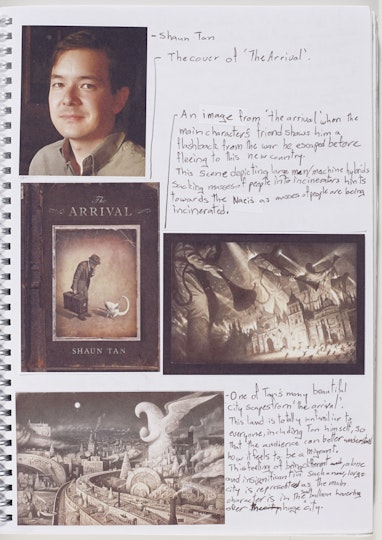 - Shaun Tan
- The cover of 'The Arrival'.
- An image from 'the arrival' when the
main characters friend shows him a
flashback from the war he escaped before
fleeing to this new country.
This scene depicting large men/machine hybrids
sucking masses of people into incinerators hints
towards the Nazis as masses of people are being
incinerated.
The
ARRIVAL
SHAUN TAN
- One of Tan's many beautiful
city scapes from 'the arrival'.
This land is totally unfamiliar to
everyone, including Tan himself, so
that the audience can better understand
how it feels to be a migrant.
This feeling of being alone
and insignificant in such a new, large
city is represented as the main
character is in the balloon hovering
over huge city.